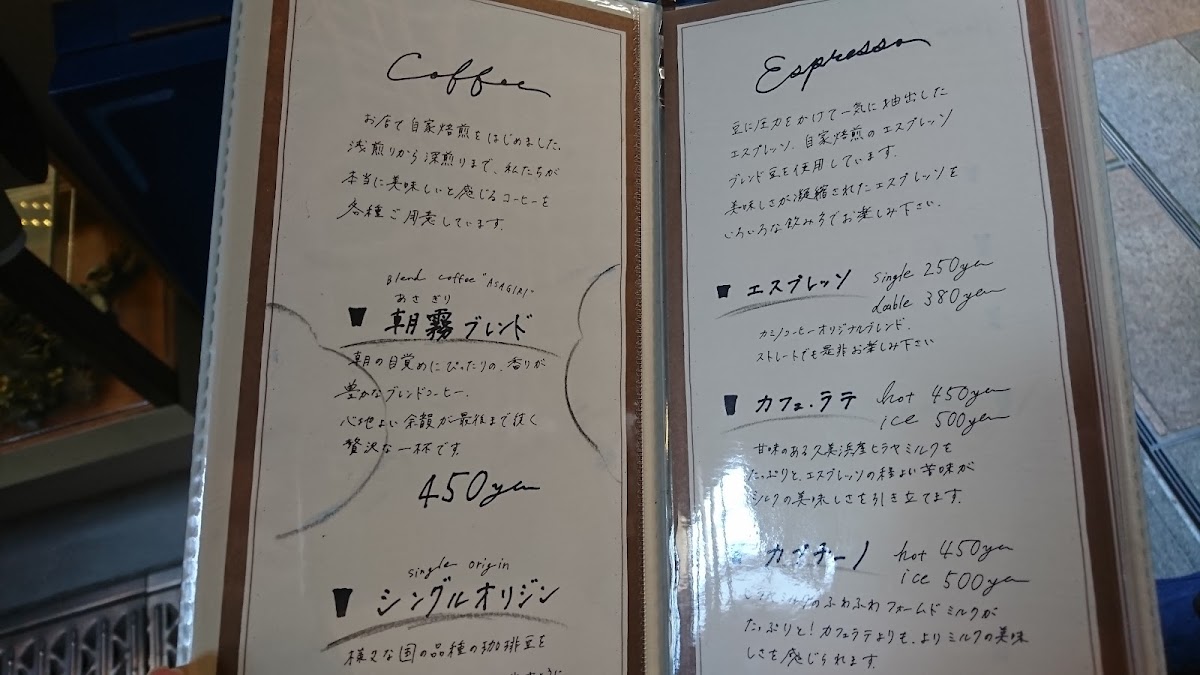 Coffee
お店で自家焙煎をはじめました。
浅煎りから深煎りまで、私たちが
本当に美味しいと感じるコーヒーを
各種ご用意しています。
Blend coffee "ASAGIRI"
あさぎり
朝霧ブレンド
朝の目覚めにぴったりの、香りが
豊かなブレンドコーヒー。
心地よい余韻が最後まで続く
贅沢な一杯です。
450yen
single origin
シングルオリジン
様々な国の品種の珈琲豆を
Espresso
豆に圧力をかけて一気に抽出した
エスプレッソ。自家焙煎のエスプレッソ
ブレンド豆を使用しています。
美味しさが凝縮されたエスプレッソを
いろいろな飲み方でお楽しみ下さい。
エスプレッソ single 250yen
double 380yen
カミノコーヒーオリジナルブレンド。
ストレートでも是非お楽しみ下さい
カフェ・ラテ hot 450yen
ice 500yen
甘味のある久美浜産ヒラヤミルクを
たっぷりと、エスプレッソの程よい苦味が
ミルクの美味しさを引き立てます。
カプチーノ hot 450yen
ice 500yen
のふわふわフォームドミルクが
たっぷりと!カフェラテよりも、よりミルクの美味
しさを感じられます。